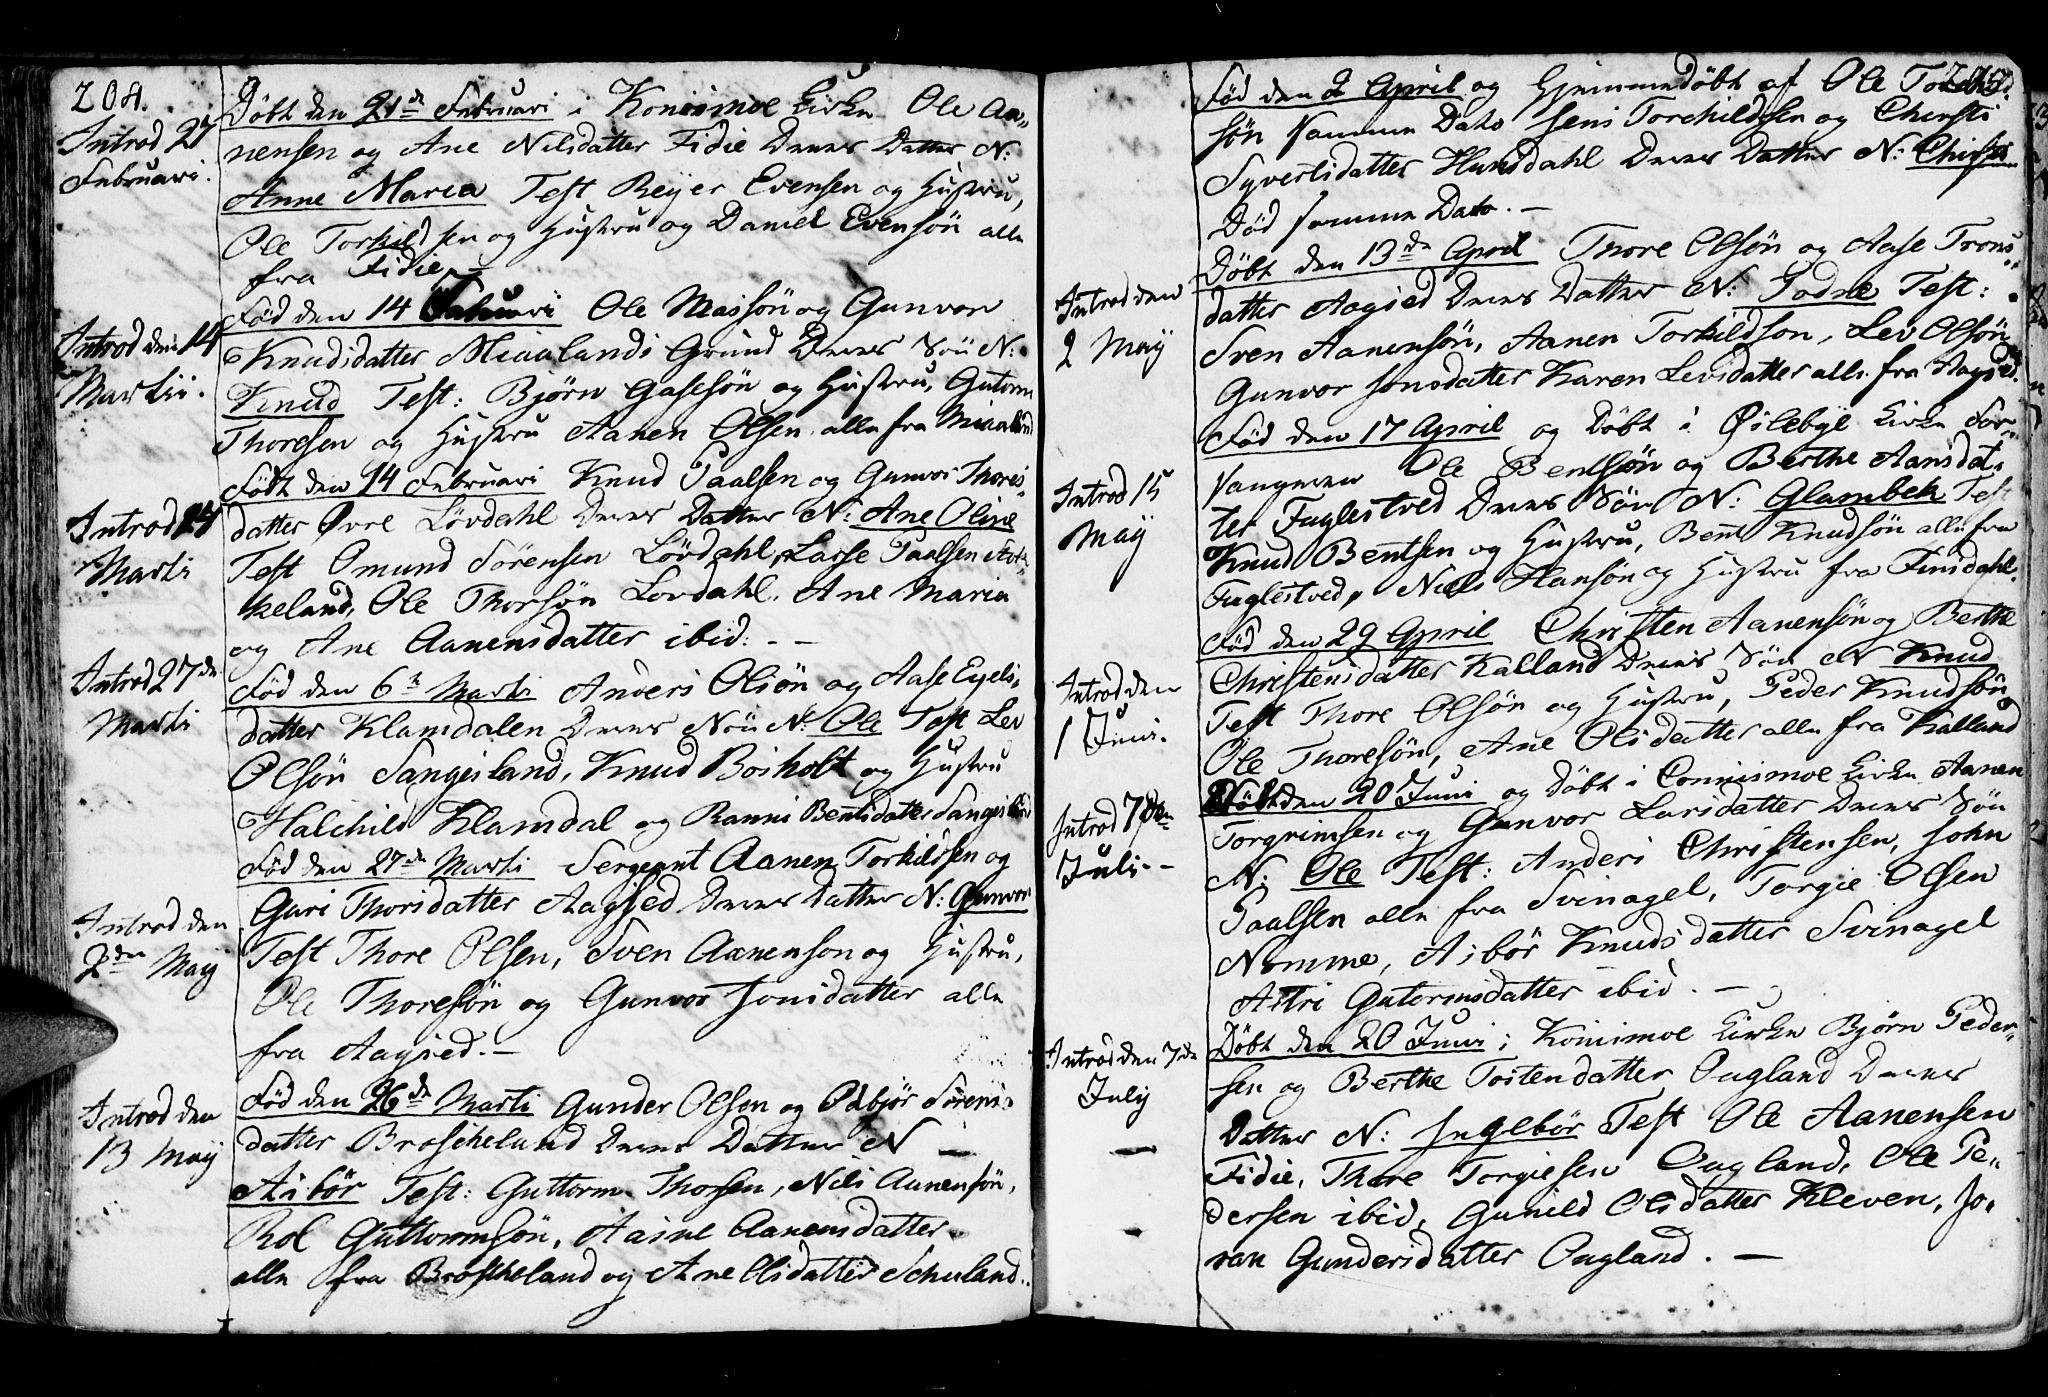 204.
Introd 27
Februari.
Døbt den 21de Februari i Konismoe Kirke Ole Aa-
nensen og Ane Nilsdatter Fidie Deres Datter N:
Anne Maria Test Reÿer Evensen og Hustru,
Ole Torkildsen og Hustru og Daniel Evensøn alle
fra Fidie. –
Introd den 14
Martii.
Fød den 14 Februari Ole Massøn og Gunvor
Knudsdatter Miaalands Grund Deres Søn N:
Knud Test: Bjørn Gasesøn og Hustru, Gutorm
Thoresen og Hustru Aanen Olsen alle fra Miaaland
Introd 14
Marti
Født den 14 Februari Knud Paalsen og Gunvor Thores-
datter Øvre Løvdahl Deres Datter N: Ane Oline
Test Omund Sørensen Løvdahl, Lasse Paalsen
keland, Ole Thorsøn Lovdahl, Ane Maria
og Ane Aanensdatter ibid: - -
Introd 27de
Marti
Fød den 6te Marti Anders Olsøn og Aase Eyels-
datter Klamdalen Deres Søn N: Ole Test Lev
Olsøn Sangesland, Knud Bosholt og Hustru
Halchild Klamdal og Ranni Bentsdatter Sangesland
Introd den
2den Maÿ
Fød den 27de Marti Sergeant Aanen Torkildsen og
Guri Thorsdatter Aagsed Deres Datter N: Gunvor
Test Thore Olsen, Sven Aanenson og Hustru,
Ole Thoresøn og Gunvor Jonsdatter alle
fra Aagsed. –
Introd den
13 Maÿ
Fød den 26de Marti Gunder Olsen og Odbjør Sørens-
datter Broscheland Deres Datter N –
Asbør Test: Guttorm Thorsen, Nils Aanensøn,
Rol Guttormsøn, Aasne Aanensdatter
alle fra Broscheland og Ane Olsdatter
Fød den 2 April og Hjemmedøbt af Ole
søn samme Dato Jens Torchildsen og Chersti
Syvertsdatter Hunsdahl Deres Datter N:
Død samme Dato. –
Introd den
2 Maÿ
Døbt den 13de April Thore Olsøn og Aase Trons-
datter Aagsed Deres Datter N: Todne Test:
Sven Aanensøn, Aanen Torkildson, Lev Olsøn
Gunvor Jonsdatter Karen Levsdatter alle fra Aagsed.
Introd 15
Maÿ
Fød den 17 April og Døbt i Øÿlebÿe Kirke For-
pagteren Ole Bentsøn og Berthe Aansdat-
ter Fuglestved Deres Søn N: Glambek Test
Knud Bentsen og Hustru, Bent Knudsøn alle fra
Fuglestved, Niels Hansøn og Hustru fra Finsdahl.
Introd den
1 Juni.
Fød den 29 April Christen Aanensøn og Berthe
Christensdatter Kalland Deres Søn N Knud
Test Thore Olsøn og Hustru, Peder Knudsøn
Ole Thoresøn, Ane Olsdatter alle fra Kalland
Introd 7den
Juli. -
Døbt den 20 Juni og Døbt i Connismoe Kirke Aanen
Torgrimsen og Gunvor Larsdatter Deres Søn
N: Ole Test: Anders Christensen, John
Paalsen alle fra Svinagel, Torgie Olsen
Nomme, Asbør Knudsdatter Svinagel
Astri Gutormsdatter ibid. –
Introd den 7de
Julÿ
Døbt den 20 Juni i Konismoe Kirke Bjørn Peder-
sen og Berthe Tostendatter Ougland Deres
Datter N: Ingebør Test Ole Aanensen
Fidie, Thore Torgiesen Ougland, Ole Pe-
dersen ibid, Gunild Olsdatter Kleven, Jo-
ran Gundersdatter Ougland. –